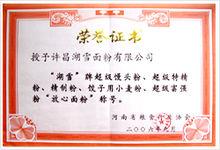 荣誉证书
授予许昌湖雪面粉有限公司
“湖雪”牌超级馒头粉、超级特精
粉、精制粉、饺子用小麦粉、超级富强
粉“放心面粉”称号。
河南省粮食 协会
二〇〇六年 月